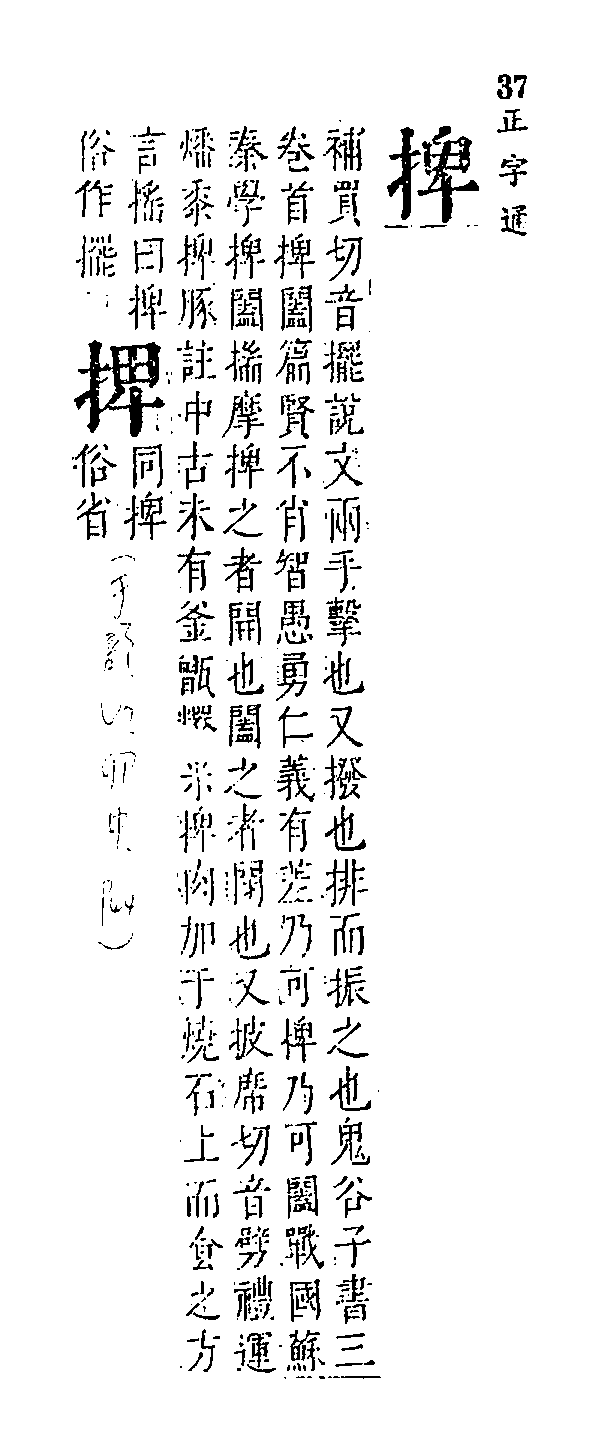 37 正字通
捭
補買切音擺說文兩手擊也又撥也排而振之也鬼谷子書三
卷首捭闔篇賢不肖智愚勇仁義有差乃可捭乃可闔戰國蘇
秦學捭闔揣摩捭之者開也闔之者閉也又披席切音劈禮運
燔黍捭豚註中古未有釜甑 米捭肉加于燒石上而食之方
言搖曰捭
俗作擺
同捭
俗省